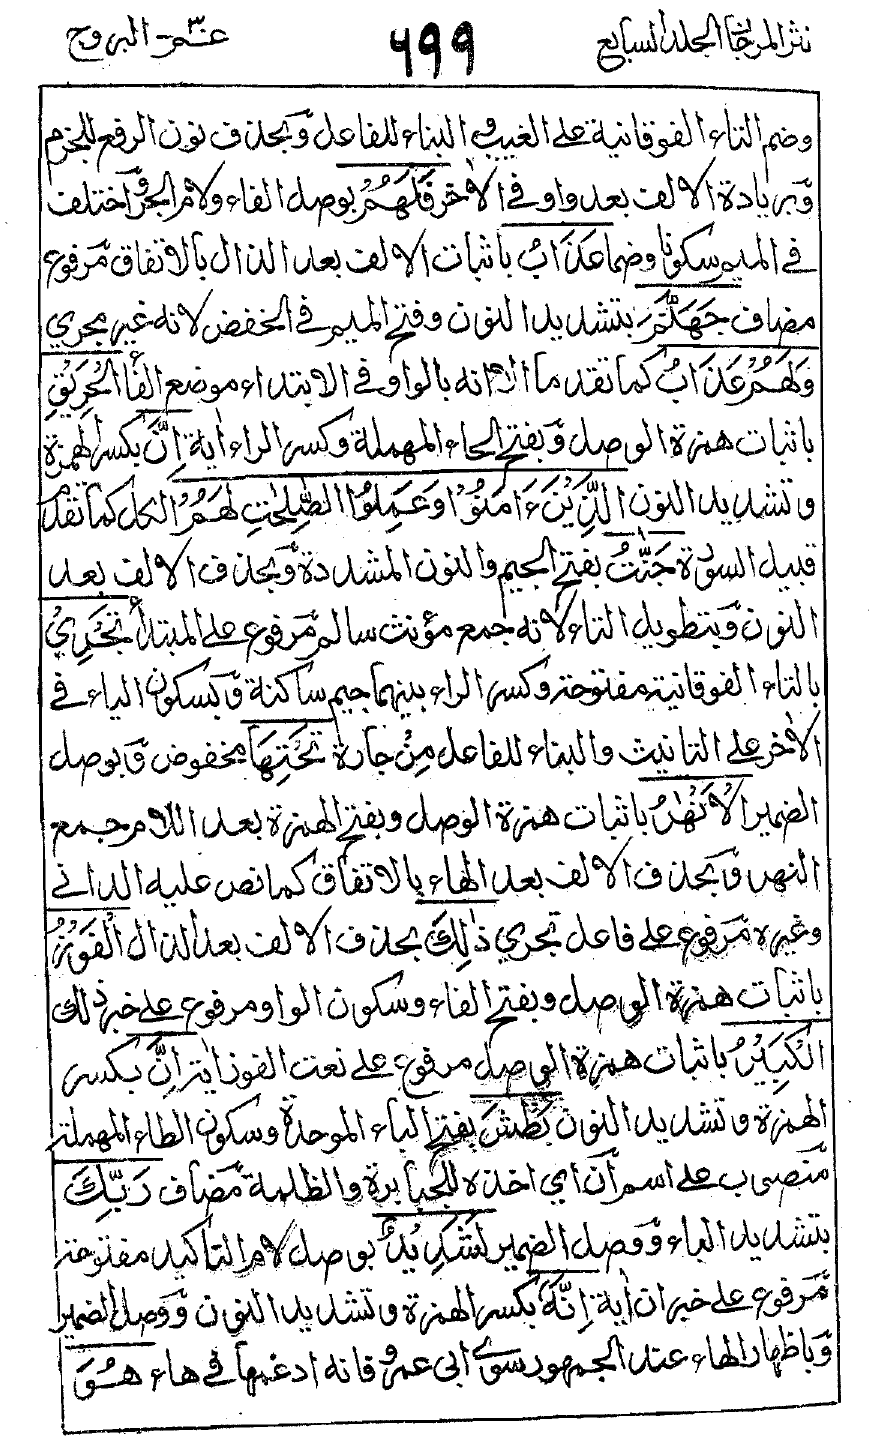 نثر المرجان الجلد السابع ٦٩٩ عمّ البروج
وضم التاء الفوقانية على الغيب والبناء للفاعل وبحذف نون الرفع للجزم
وبزيادة الالف بعد واو في الآخر فَلَهُمْ بوصل الفاء ولام الجر واختلف
في الميم سكونا وضما عَذَابُ باثبات الالف بعد الذال بالاتفاق مرفوع
مضاف جَهَنَّمَ بتشديد النون وفتح الميم في الخفض لانه غير مجرى
وَلَهُمْ عَذَابُ كما تقدما الا انه بالواو في الابتداء موضع الفاء الْحَرِيْقِ
باثبات همزة الوصل وبفتح الحاء المهملة وكسر الراء اية اِنَّ بكسر الهمزة
وتشديد النون الَّذِيْنَ ءَامَنُوْا وَعَمِلُوا الصّٰلِحٰتِ لَهُمْ الكل كما تقدم
قبيل السورة جَنّٰتٌ بفتح الجيم والنون المشددة وبحذف الالف بعد
النون وبتطويل التاء لانه جمع مؤنث سالم مرفوع على المبتدأ تَجْرِيْ
بالتاء الفوقانية مفتوحة وكسر الراء بينهما جيم ساكنة وبسكون الياء في
الآخر على التانيث والبناء للفاعل مِنْ جارة تَحْتِهَا مخفوض وبوصل
الضمير الْاَنْهٰرُ باثبات همزة الوصل وبفتح الهمزة بعد اللام جمع
النهر وبحذف الالف بعد الهاء بالاتفاق كما نص عليه الداني
وغيره مرفوع على فاعل تجري ذٰلِكَ بحذف الالف بعد الذال الْفَوْزُ
باثبات همزة الوصل وبفتح الفاء وسكون الواو مرفوع على خبر ذلك
الْكَبِيْرُ باثبات همزة الوصل مرفوع على نعت الفوز اية اِنَّ بكسر
الهمزة وتشديد النون بَطْشَ بفتح الباء الموحدة وسكون الطاء المهملة
منصوب على اسم ان اي اخذه للجبابرة والظلمة مضاف رَبِّكَ
بتشديد الباء ووصل الضمير لَشَدِيْدٌ بوصل لام التاكيد مفتوحة
مرفوع على خبر ان اية اِنَّهٗ بكسر الهمزة وتشديد النون ووصل الضمير
وباظهار الهاء عند الجمهور سوى ابي عمرو فانه ادغمها في هاء هُوَ